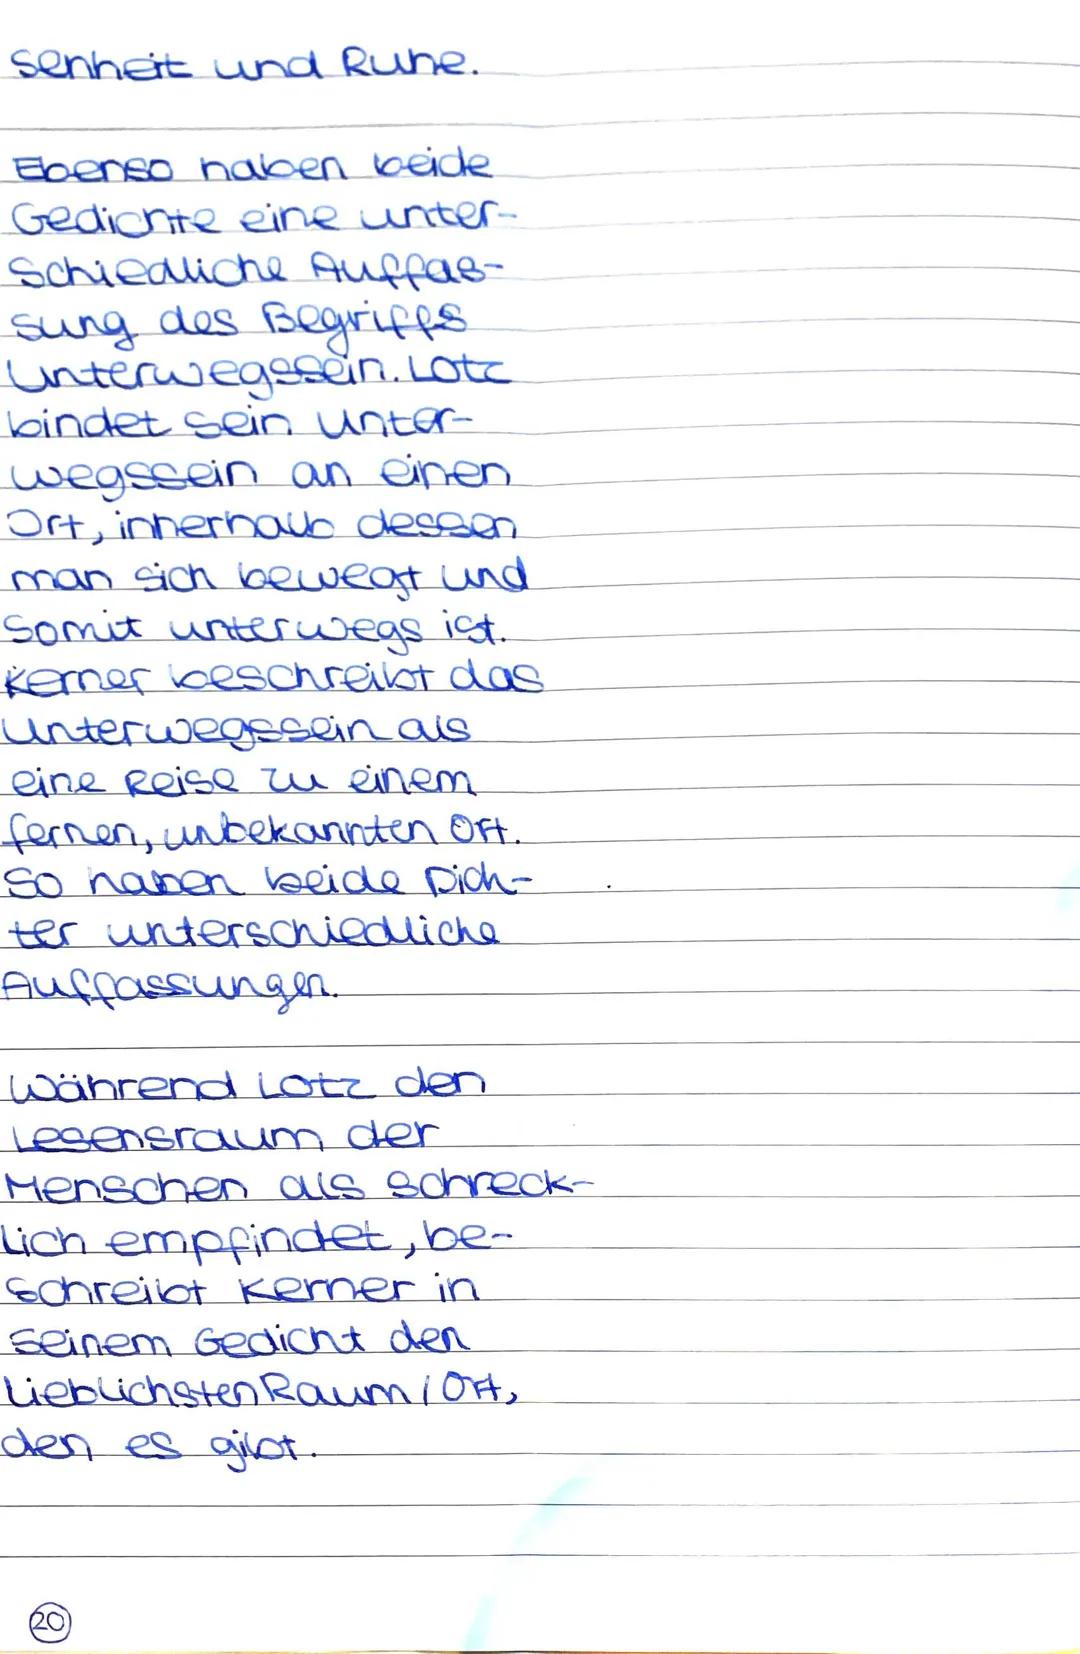 senheit und Ruhe.
Ebenso haben beide
Gedichte eine unter-
schiedliche Auffas-
sung des Begriffs
Unterwegssein. Lotz
bindet sein Unter-
wegssein an einen
Ort, innerhalb dessen
man sich bewegt und
somit unterwegs ist.
Kerner beschreibt das
Unterwegssein als
eine Reise zu einem
fernen, unbekannten Ort.
So haben beide Dich-
ter unterschiedliche
Auffassungen.
Während Lotz den
Lesensraum der
Menschen als schreck-
lich empfindet, be-
schreibt Kerner in
seinem Gedicht den
lieblichsten Raum / Ort,
den es gibt.
20